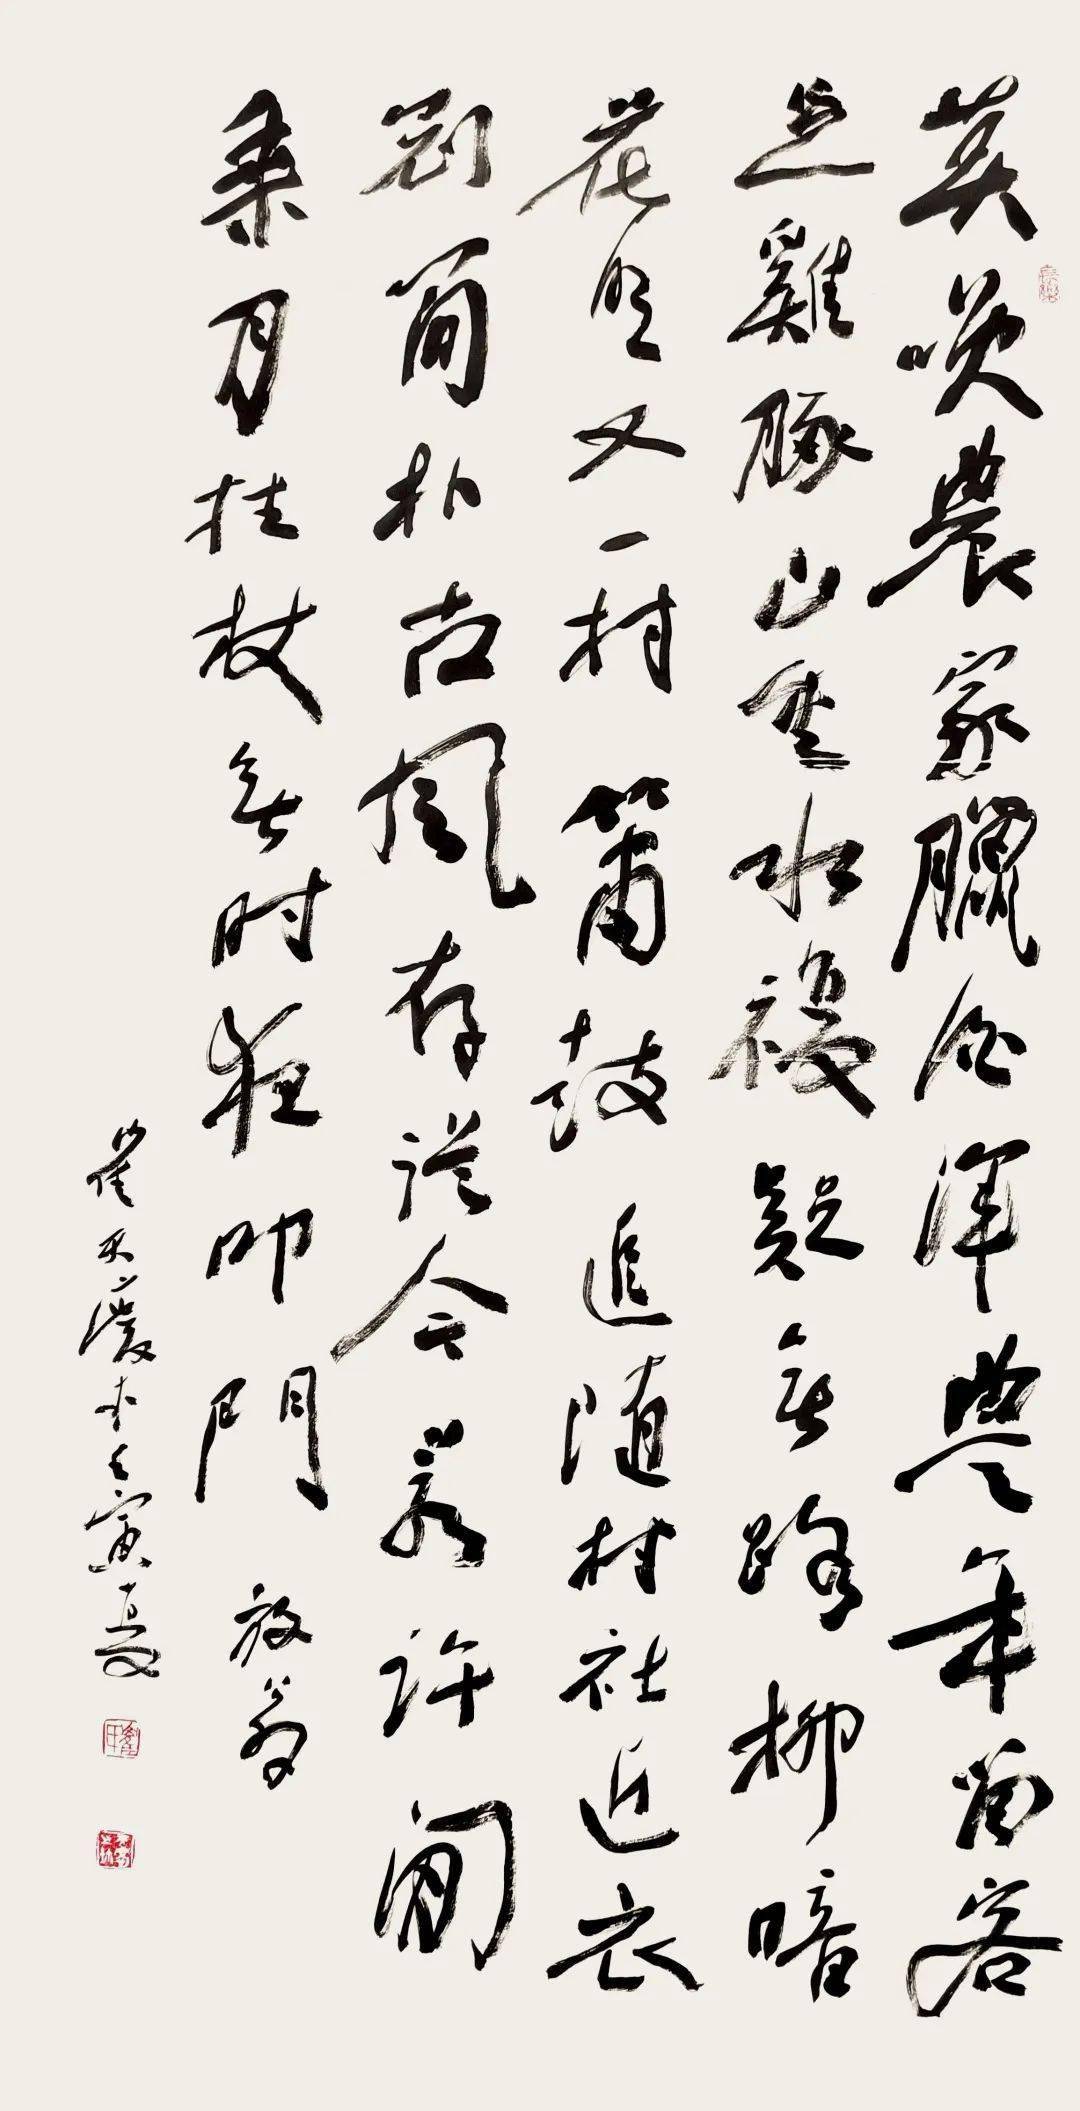 莫咲農家臘酒渾豊年留客
足雞豚山重水複疑無路柳暗
花明又一村簫鼓追随村社近衣
冠簡朴古風存從今若許閒
乘月拄杖無时夜叩門 放翁
崔天慶书壬寅夏